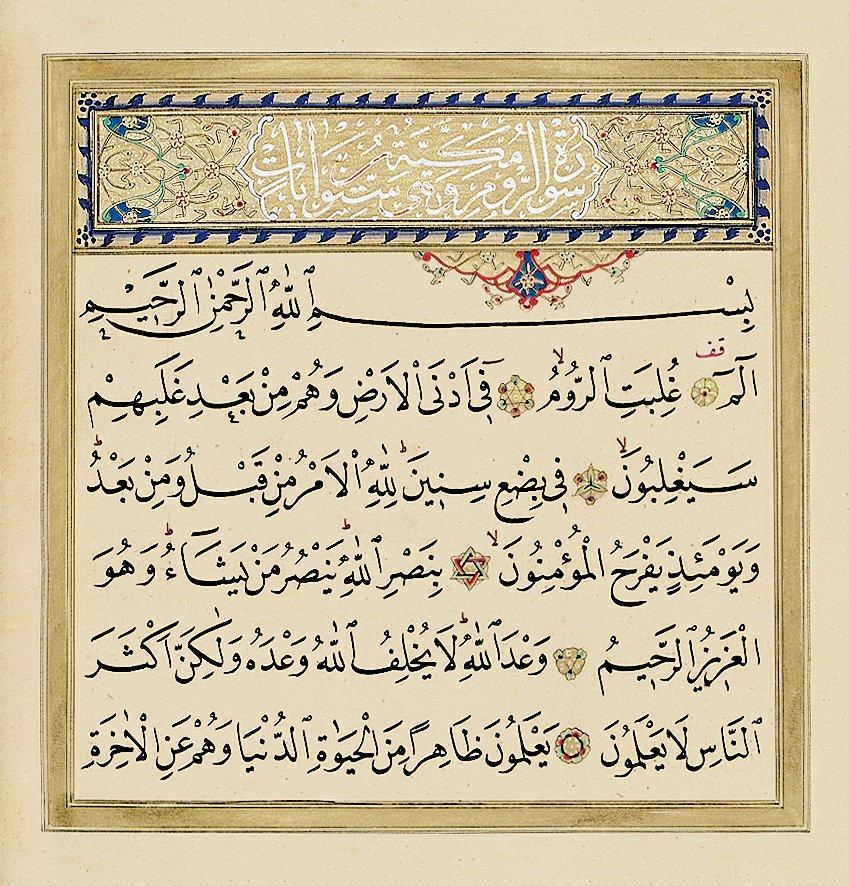 سورة الروم مكية وهي ستون آيات
بِسْمِ ٱللّٰهِ ٱلرَّحْمٰنِ ٱلرَّحٖيمِ
قف
الٓمٓ غُلِبَتِ ٱلرُّومُۙ فٖٓي اَدْنَى الْاَرْضِ وَهُمْ مِنْ بَعْدِ غَلَبِهِمْ
سَيَغْلِبُونَۙ فٖي بِضْعِ سِنٖينَؕ لِلّٰهِ الْاَمْرُ مِنْ قَبْلُ وَمِنْ بَعْدُؕ
وَيَوْمَئِذٍ يَفْرَحُ الْمُؤْمِنُونَۙ بِنَصْرِ ٱللّٰهِؕ يَنْصُرُ مَنْ يَشَٓاءُؕ وَهُوَ
الْعَزٖيزُ ٱلرَّحٖيمُ وَعْدَ ٱللّٰهِؕ لَا يُخْلِفُ ٱللّٰهُ وَعْدَهُ وَلٰكِنَّ اَكْثَرَ
ٱلنَّاسِ لَا يَعْلَمُونَ يَعْلَمُونَ ظَاهِرًا مِنَ الْحَيٰوةِ ٱلدُّنْيَا وَهُمْ عَنِ الْاٰخِرَةِ